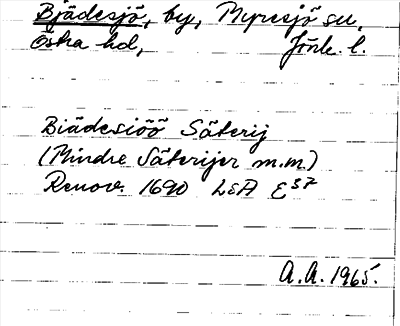 Bjädesjö, by, Myresjö sn,
Östra hd, Jönk. l.
Biädesiöö Säterij
(Mindre Säterijer m.m.)
Renov. 1690 LEA E37
A.A. 1965.